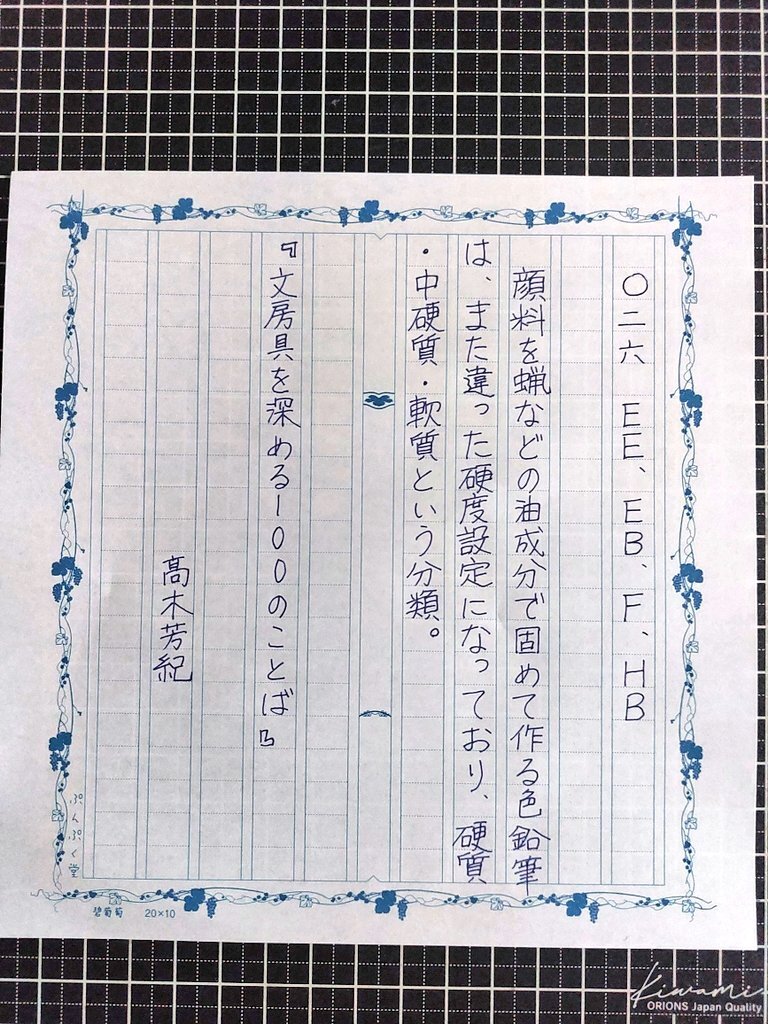 〇二六　EE、EB、F、HB
顔料を蝋などの油成分で固めて作る色鉛筆
は、また違った硬度設定になっており、硬質
・中硬質・軟質という分類。
『文房具を深める100のことば』
高木芳紀
ぷんぷく堂
碧葡萄　20×10
Kiwami
ORIONS Japan Quality